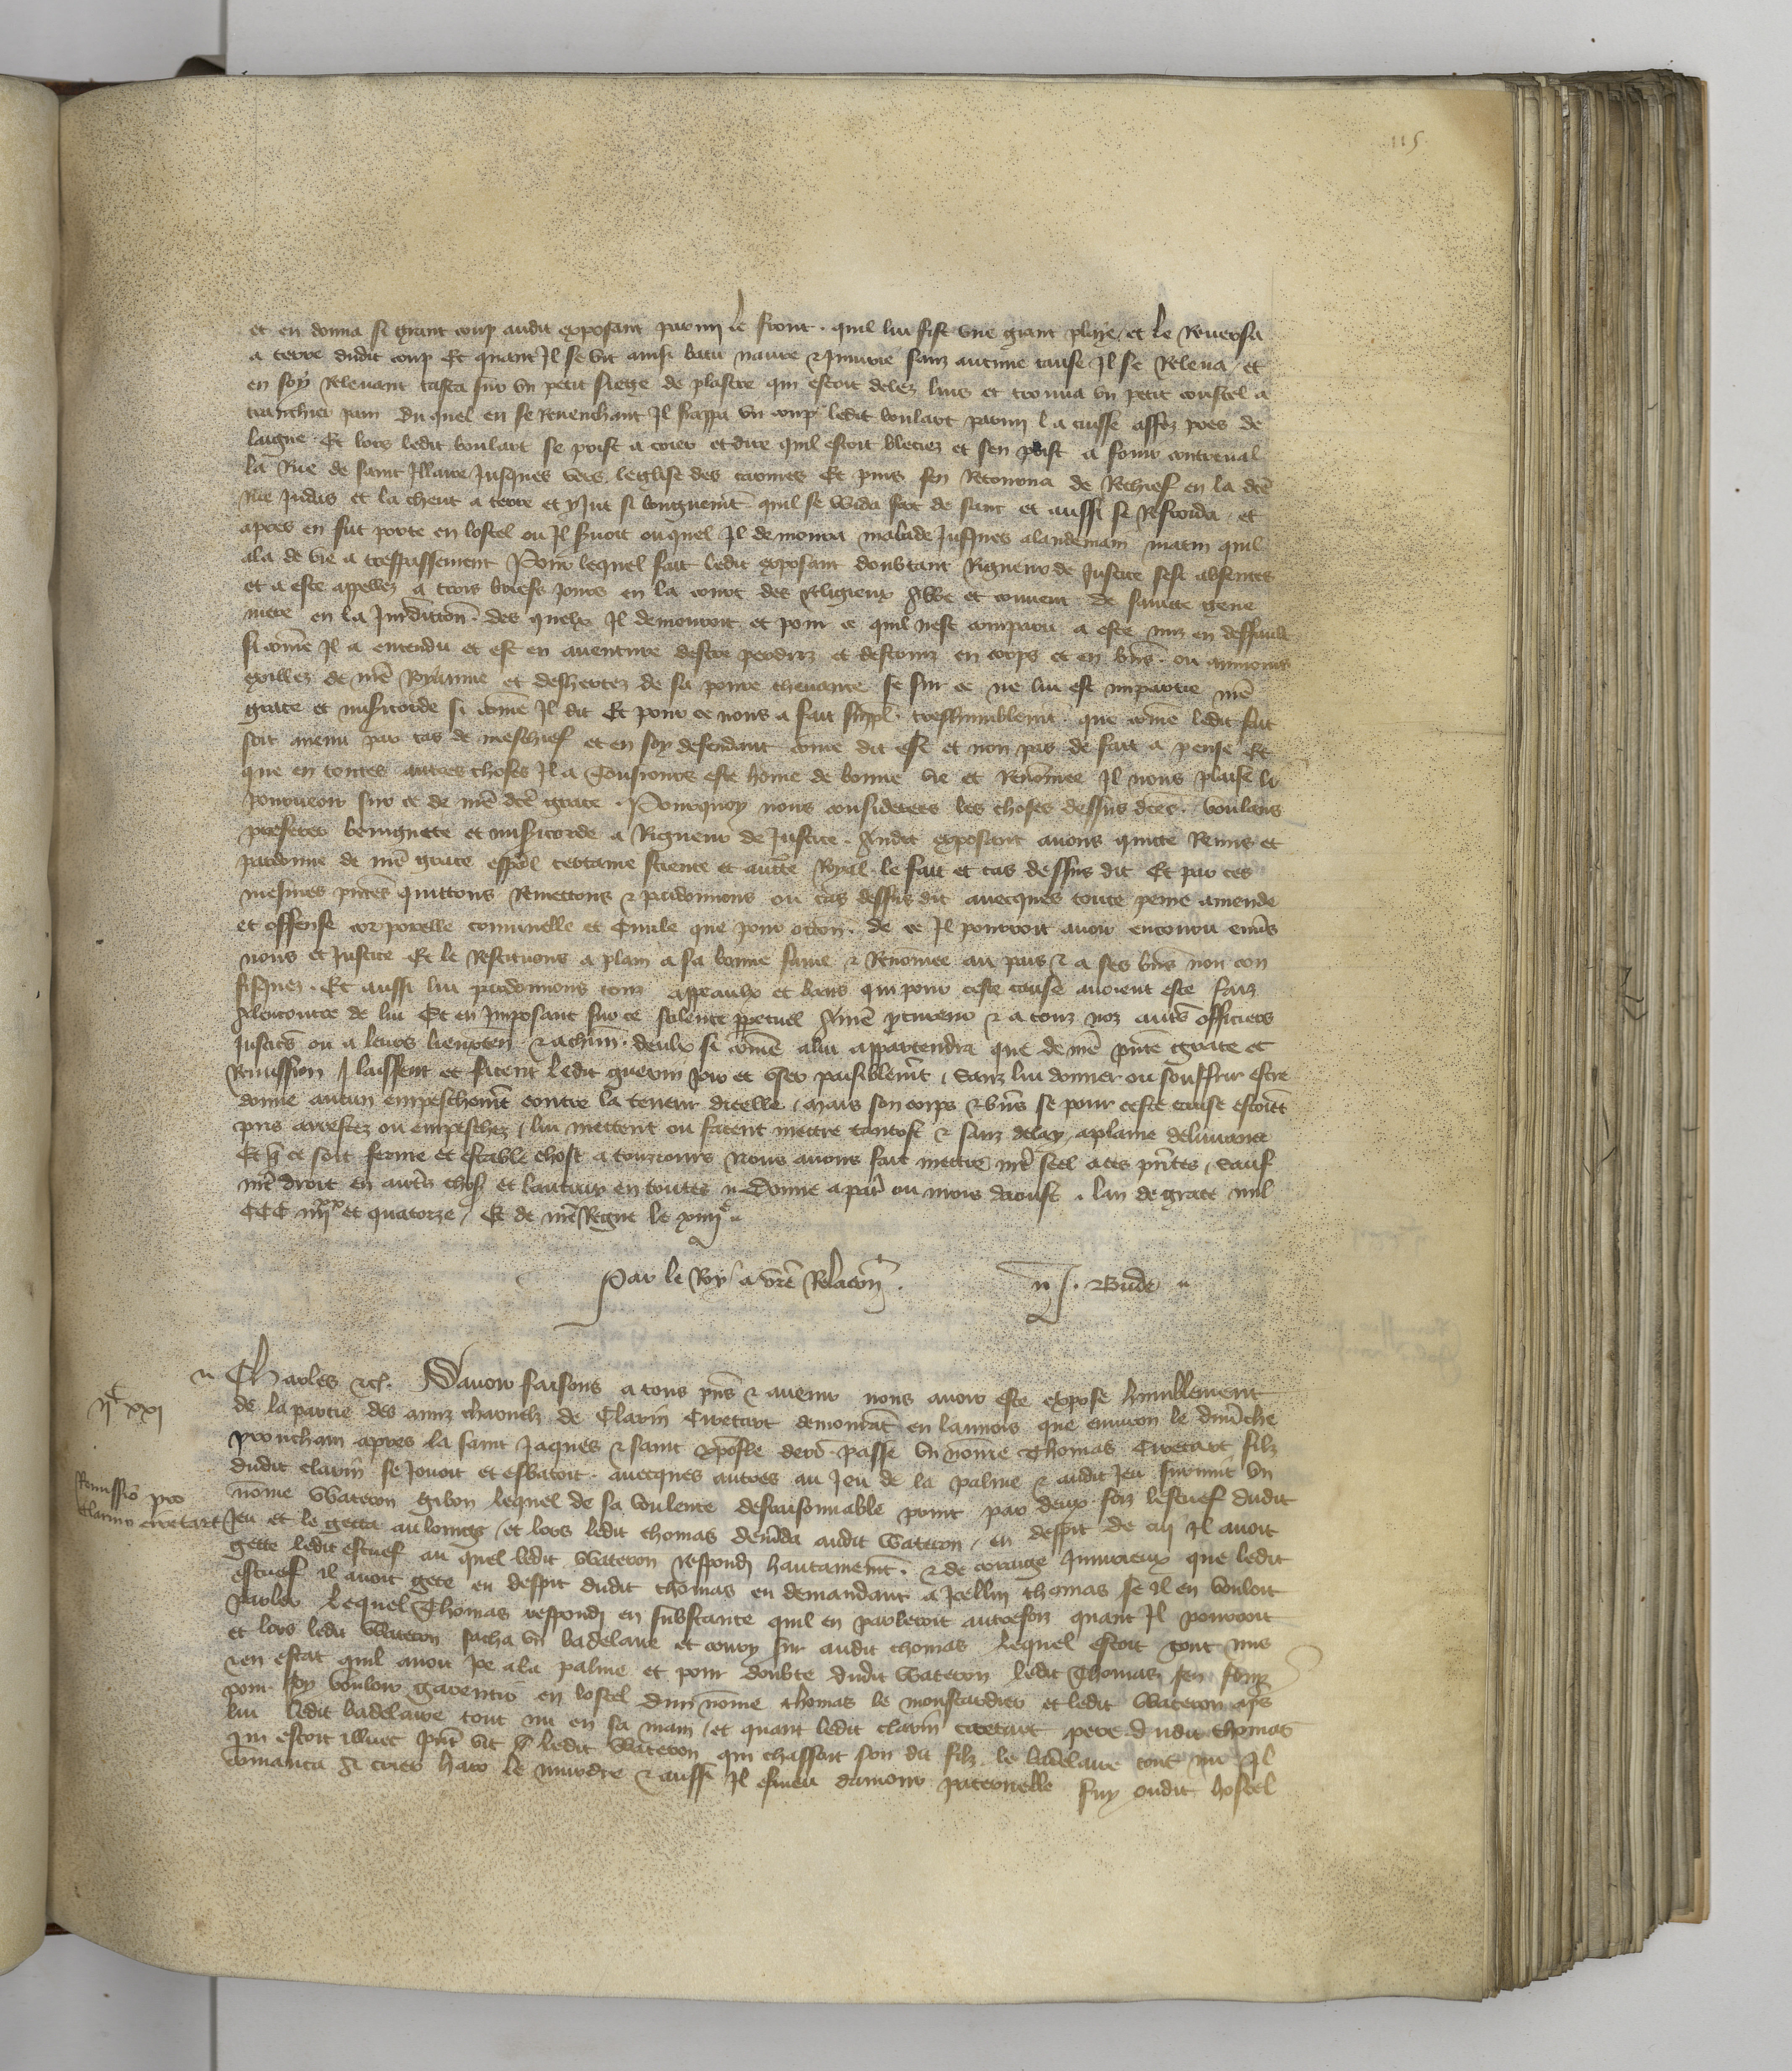 115
et en donna si grant coup audit exposant parmy le front . quil lui fist une grant playe et le Reversa
a terre dudit coup Et quant Il se vit ainsi batu navre & Iniurie sanz aucune cause Il se Releva / et
en soy Relevant tasta sur un petit siege de plastre qui estoit delez luis et trouva un petit coustel a
tranchier pain Du quel en se Revenchant Il frappa un coup ledit boulart parmy la cuisse assez pres de
laigne . Et lors ledit boulart se prist a crier et dire quil estoit bleciez et sen prist a fouir contreval
la Rue de saint Illaire Jusques vers leglise des carmes Et puis sen Retourna de Rechief en la dce
rue Judas et la cheut a terre et y Jut si longuemt quil se wida fort de sanc et aussi se Refroida / et
apres en fut porte en lostel ou Il buvoit ouquel Il demoura malade Jusques alandemain matin quil
ala de vie a trespassement Pour lequel fait ledit exposant doubtant Rigueur de Justice sest absentes
et a este appellez a trois briefs jours en la court des Religieux Abbe et couvent de saincte gene
vieve en la Juridiction . des quelx Il demouroit et pour ce quil nest comparu a este mis en deffault
si come Il a entendu et est en aventure destre perduz et destruiz en corps et en biens . ou aumoins
exillez de nre Royaume et desheritez de sa povre chevance se sur ce ne lui est impartie nre
grace et misericorde si come Il dit Et pour ce nous a fait suppl . treshumblemt . que come ledit fait
soit avenu par cas de meschief et en soy defendant come dit est et non pas de fait a pense Et
que en toutes autres choses Il a Tousiours este home de bonne vie et Renommee Il nous plaise li
pourveoir sur ce de nre dce grace . Pourquoy nous considerees les choses dessus dces . voulans
preferer benignete et misericorde a Rigueur de Justice . Audit exposant avons quicte Remis et
pardonne de nre grace espal certaine science et aucte Royal . le fait et cas dessus dit Et par ces
mesmes pntes quittons Remettons & pardonnons ou cas dessus dit avecques toute peine amende
et offense corporelle criminelle et Civile que pour occon . de ce Il pourroit avoir encouru envs
nous et Justice Et le Restituons a plain a sa bonne fame & Renomee au pais & a ses biens non con
fisquez . Et aussi lui pardonnons touz appeaulx et bans qui pour ceste cause avoient este faiz
Alencontre de lui Et en Imposant sur ce silence ppetuel A nre procureur & a touz noz autrs officiers
Justicrs ou a leurs lieuxten & a chun . deulx si come a lui appartendra que de nre pnte grace et
Remission / laissent et facent ledit guerin Joir et user paisiblemt / sanz lui donner ou souffrir estre
donne aucun empeschemt contre la teneur dicelle / mais son corps & biens se pour ceste cause estoiet
pris arrestez ou empeschez / lui mettent ou facent mettre tantost & sanz delay a plaine delivrance
Et que ce soit ferme et estable chose a touzjours Nous avons fait mettre nre seel a ces pntes / sauf
nre droit en autrs choses et lautruy en toutes .. Donne a paris ou mois daoust . lan de grace mil
CCC iiijxx et quatorze / Et de nre Regne le xiiije ..
Par le Roy a vre Relacon . .. J . Bude ..
.. Charles &c . Savoir faisons a tous pns & avenir nous avoir este expose humblement
ijc xxi
de la partie des amiz charnelz de Clarin Civetart demourant en lannois que environ le dimenche
prouchain apres la saint Jaques & saint xpofle derr . passe un nome Thomas Civetart filz
dudit clarin se Jouoit et esbatoit . avecques autres au Jeu de la palme & audit Jeu survint un
Remissio pro
clarin civetart
nome Wateron gibon lequel de sa voulente desraisonnable print par deux foiz lestuef dudit
Jeu et le getta au loings / et lors ledit thomas demanda audit Wateron / en despit de cui Il avoit
gette ledit estuef au quel ledit Wateron respondi hautement . & de corage Iniurieux que ledit
estuef il avoit gete en despit dudit thomas en demandant a Icellui thomas se il en vouloit
parler lequel Thomas respondi en substance quil en parleroit autrefoiz quant Il pourroit
et lors ledit Wateron sacha un badelaire et couru sur audit thomas lequel estoit tout nus
& en estat quil avoit joe a la palme et pour doubte dudit Wateron ledit Thomas sen fouy
pour soy vouloir garentir en lostel dun nome thomas le moustardier et ledit Wateron aps
lui ledit badelaire tout nu en sa main / et quant ledit clarin civetart pere dudit thomas
qui estoit illuec pnt vit ledit Wateron qui chassoit son dit filz le badelaire tout nu Il
comanca A crier haro le murdre & aussi Il esmeu damour paternelle fuy oudit hostel